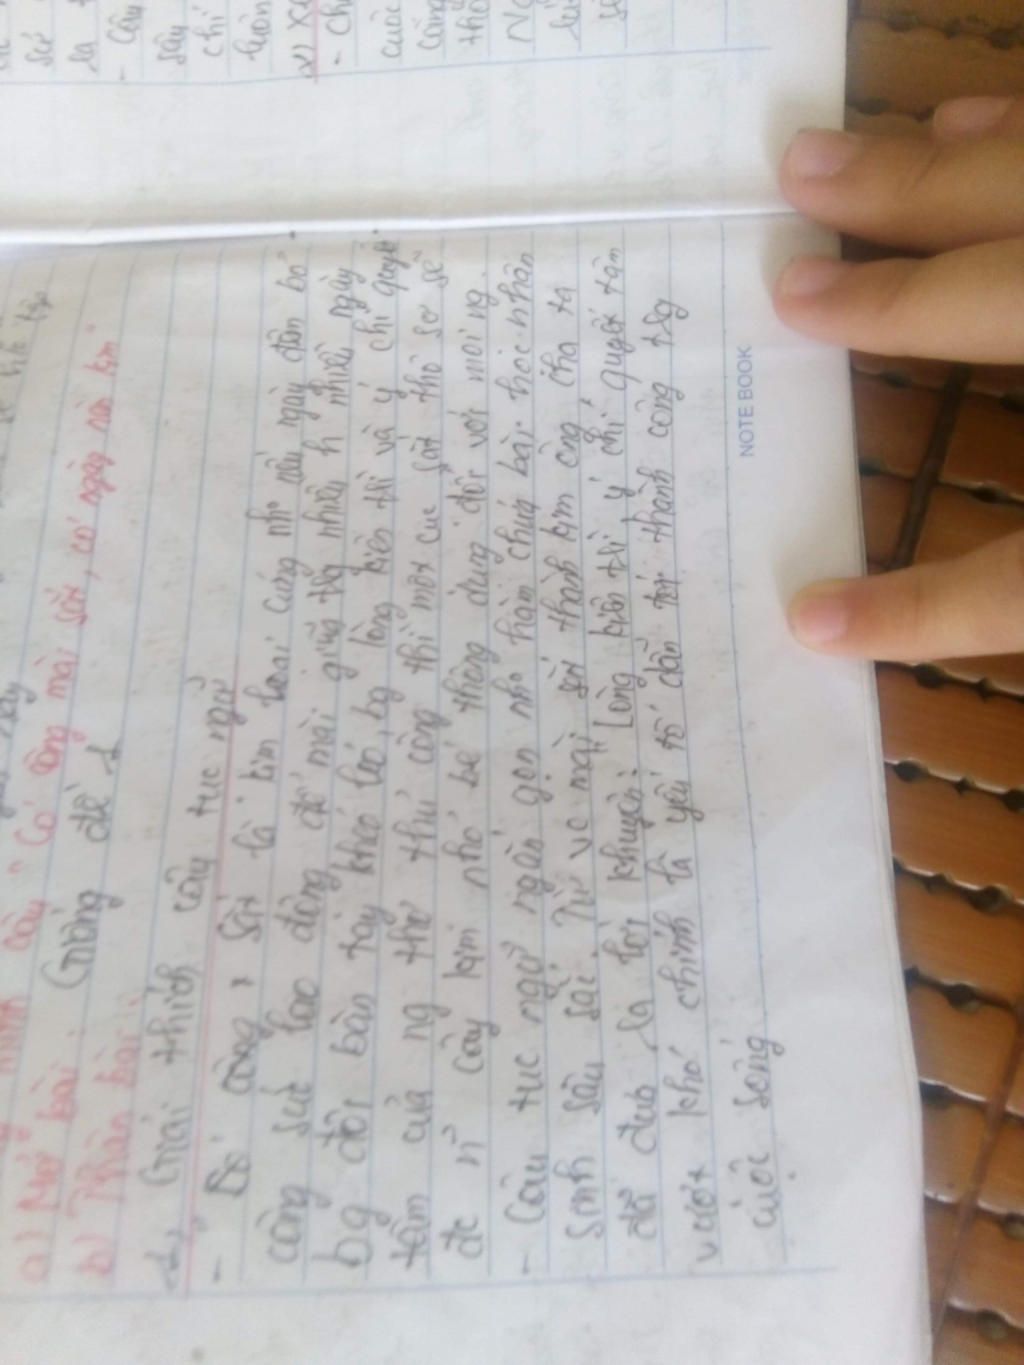 chứng minh câu "Có công mài sắt, có ngày nên kim"
a) Mở bài: Giống đề 1
b) Thân bài:
1, Giải thích câu tục ngữ
- Bỏ công, sắt là kim loại cứng nhỏ nếu ngày đêm bỏ
công sức lao động để mài giũa trg nhiều h nhiều ngày
bg đôi bàn tay khéo léo, bg lòng kiên trì và ý chí quyết
tâm của ng thợ thủ công thì một cục sắt thô sơ sẽ
đc cây kim nhỏ bé thông dụng đối với mỗi ng.
- Câu tục ngữ ngắn gọn nhỏ hàm chứa bài học nhân
sinh sâu sắc. Từ vc mài sắt thành kim ông cha ta
đã đưa ra lời khuyên: Lòng kiên trì ý chí quyết tâm
vượt khó chính là yếu tố dẫn tới thành công trg
cuộc sống
NOTE BOOK
sẽ
là
- Câu
sâu
chỉ
luôn
cuộc